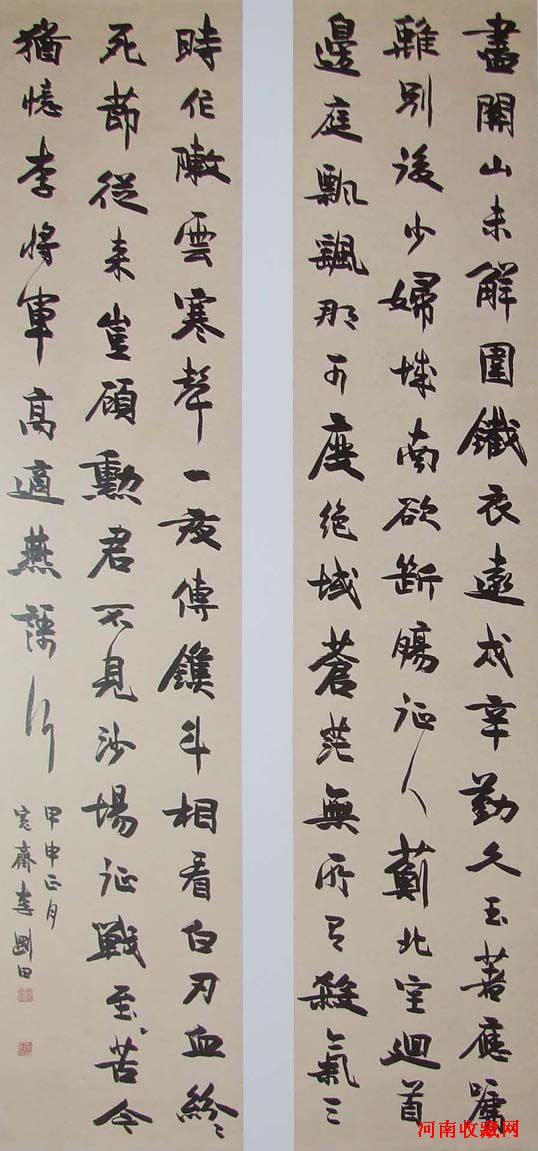 盡關山未解圍鐵衣遠戍辛勤久玉著應嗁
離別後少婦城南欲斷腸征人薊北空迴首
邊庭飄颻那可度絕域蒼茫無所有殺氣三
時作陣雲寒聲一夜傳鐎斗相看白刃血紛〻
死節從來豈顧勳君不見沙場征戰至苦今
猶憶李將軍高適燕謌行
甲申正月
寬齋李剛田
河南收藏网